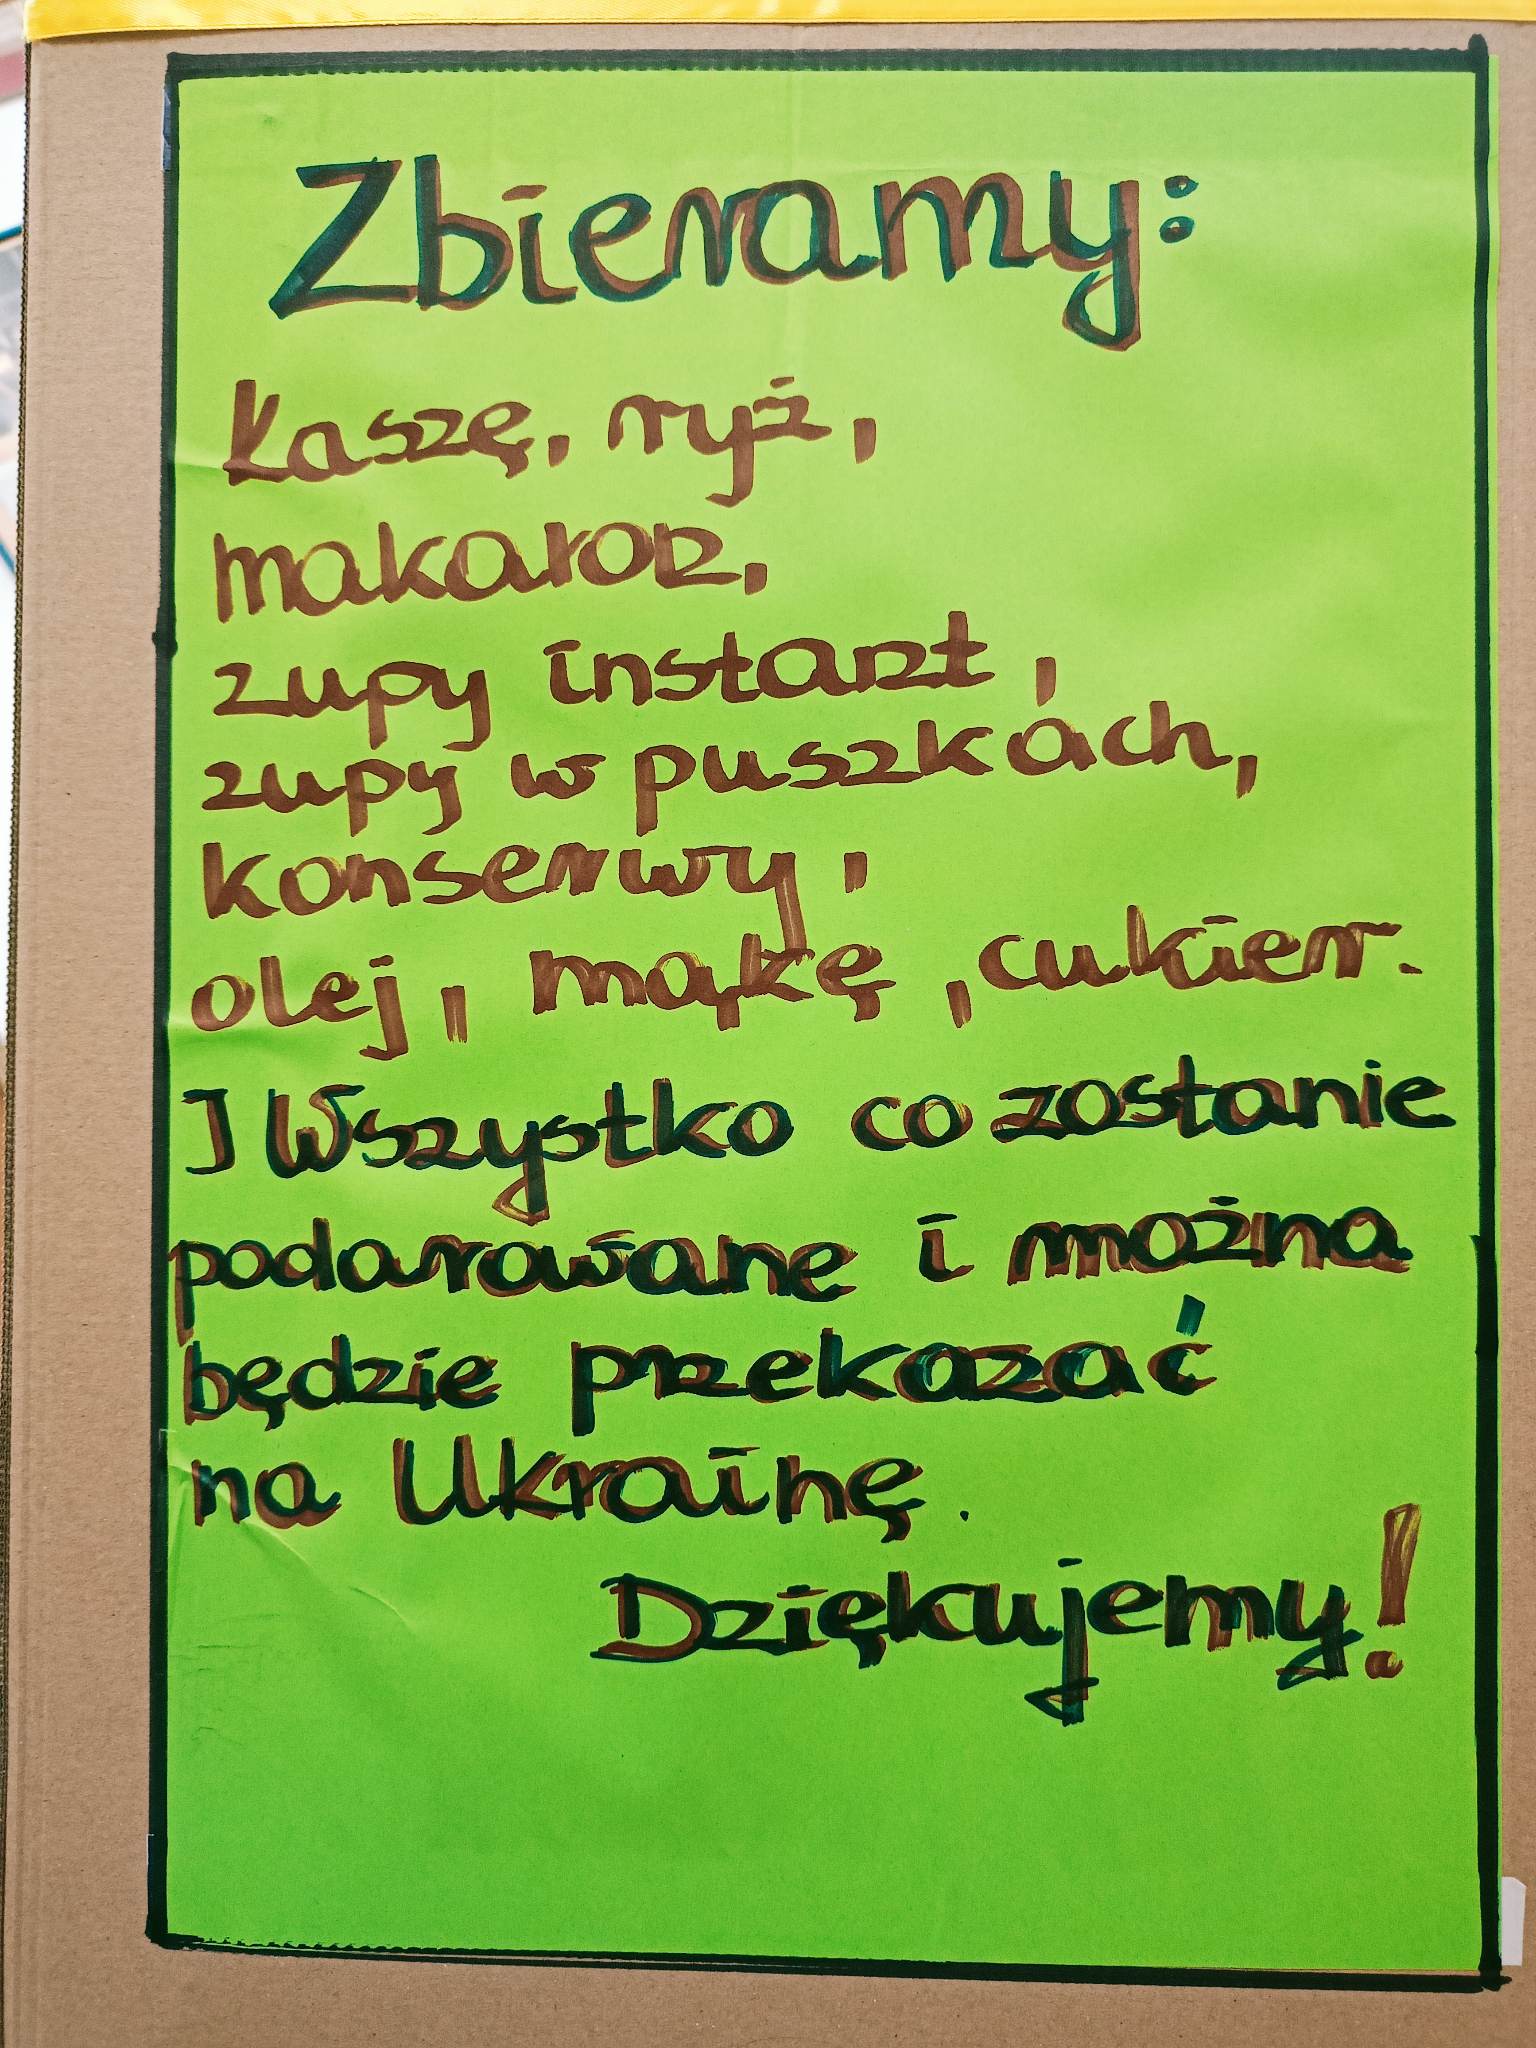 Zbieramy:
Kaszę, ryż,
makaron,
zupy instant,
zupy w puszkach,
konserwy,
olej, mąkę, cukier.
I Wszystko co zostanie
podarowane i można
będzie przekazać
na Ukrainę.
Dziękujemy!